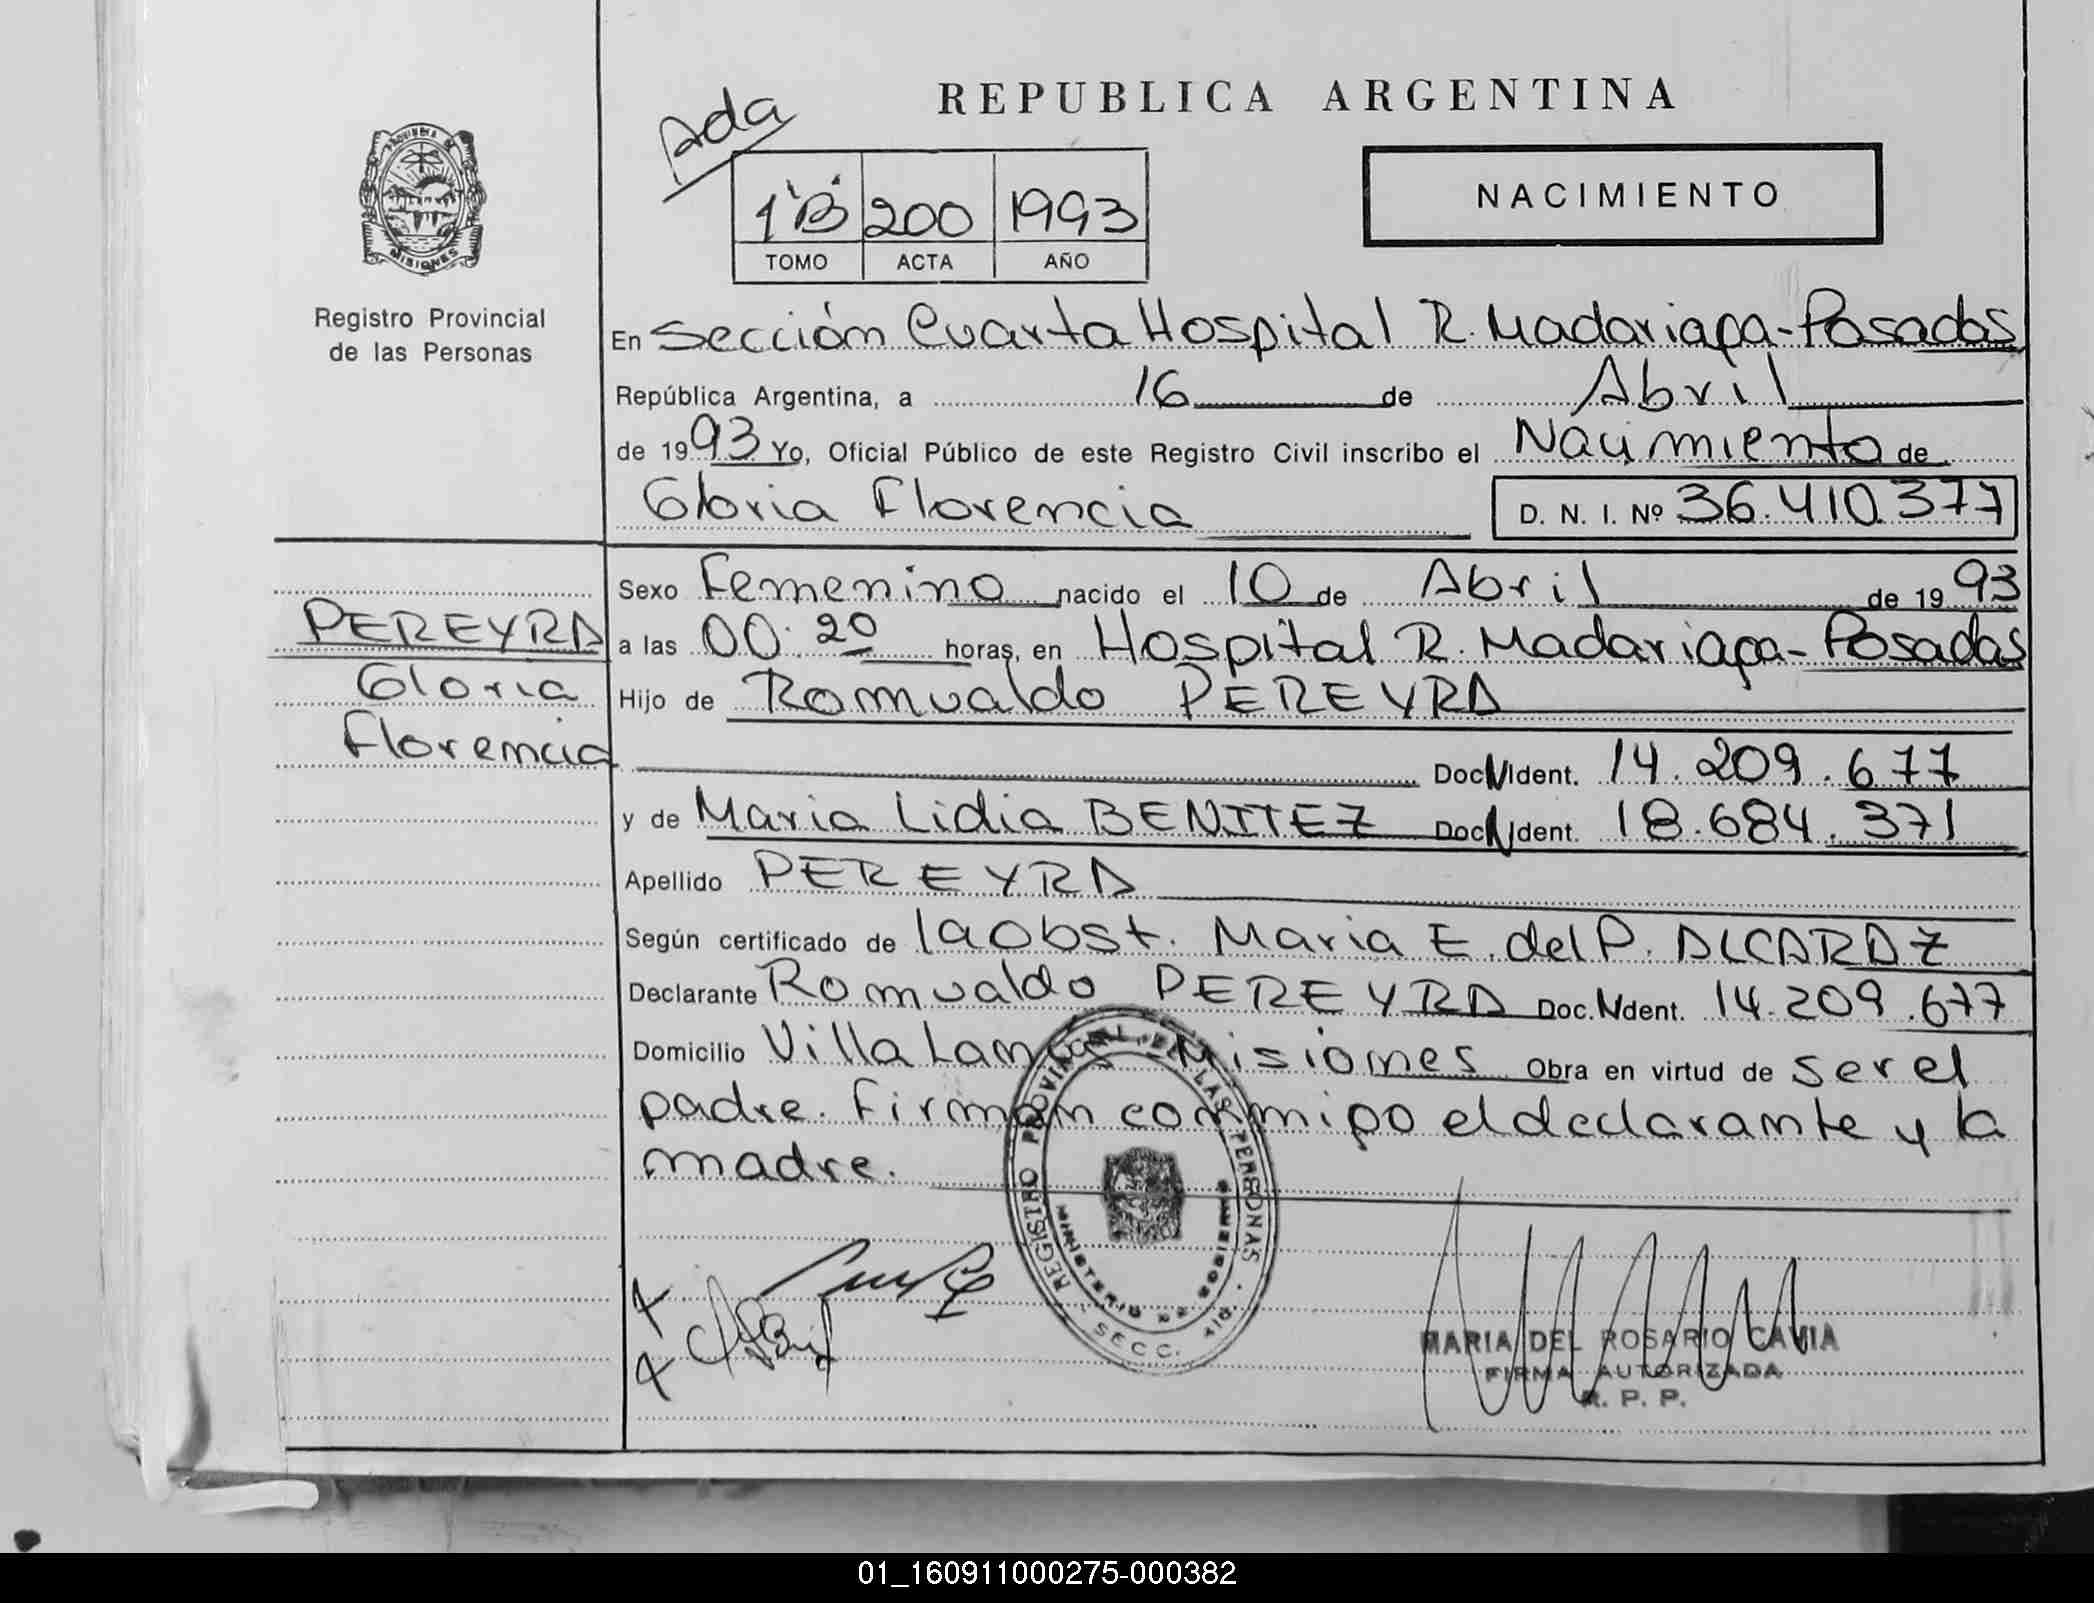 REPUBLICA ARGENTINA
Ada
NACIMIENTO
1'B' 200 1993
TOMO ACTA AÑO
PROVINCIA DE
MISIONES
Registro Provincial
de las Personas
En Sección Cuarta Hospital R. Madariaga-Posadas
República Argentina, a 16 de Abril
de 1993 Yo, Oficial Público de este Registro Civil inscribo el Nacimiento de
Gloria Florencia D. N. I. Nº 36.410.377
Sexo Femenino nacido el 10 de Abril de 1993
PEREYRA
a las 00:20 horas, en Hospital R. Madariaga-Posadas
Gloria
Hijo de Romualdo PEREYRA
Florencia
Doc N Ident. 14.209.677
y de Maria Lidia BENITEZ Doc N Ident. 18.684.371
Apellido PEREYRA
Según certificado de la Obst. Maria E. del P. ALCARAZ
Declarante Romualdo PEREYRA Doc. N Ident. 14.209.677
Domicilio Villa Misiones Obra en virtud de ser el
padre. Firman conmigo el declarante y la
madre.
REGISTRO PROVINCIAL DE LAS PERSONAS
MINISTERIO DE GOBIERNO
SECC. 4ta
MARIA DEL ROSARIO CAVIA
FIRMA AUTORIZADA
R. P. P.
01_160911000275-000382